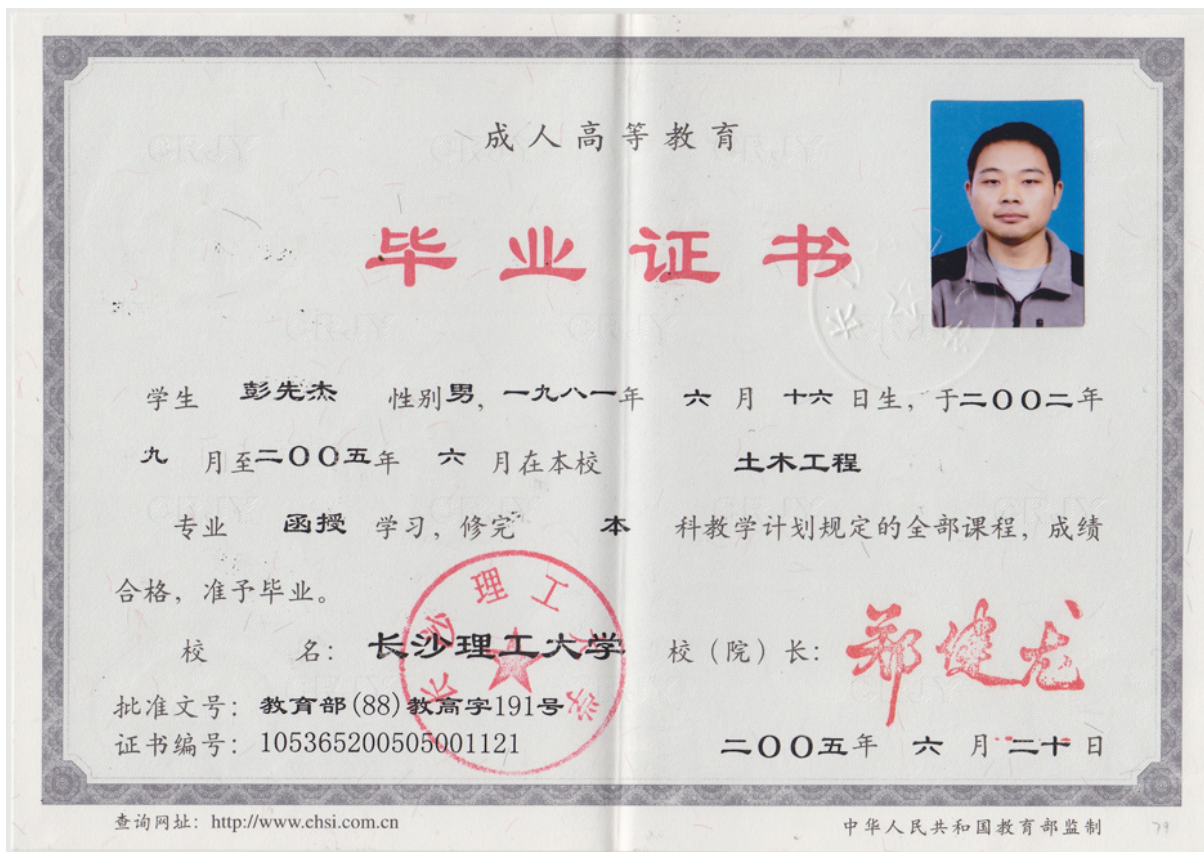 成人高等教育
毕业证书
学生 彭先杰 性别男，一九八一年 六 月 十六 日生，于二〇〇二年
九 月至二〇〇五年 六 月在本校 土木工程
专业 函授 学习，修完 本 科教学计划规定的全部课程，成绩
合格，准予毕业。
校 名：长沙理工大学 校（院）长：郑健龙
长沙理工大学
批准文号：教育部(88)教高字191号
证书编号：105365200505001121
二〇〇五年 六 月 二十 日
查询网址：http://www.chsi.com.cn
中华人民共和国教育部监制
79